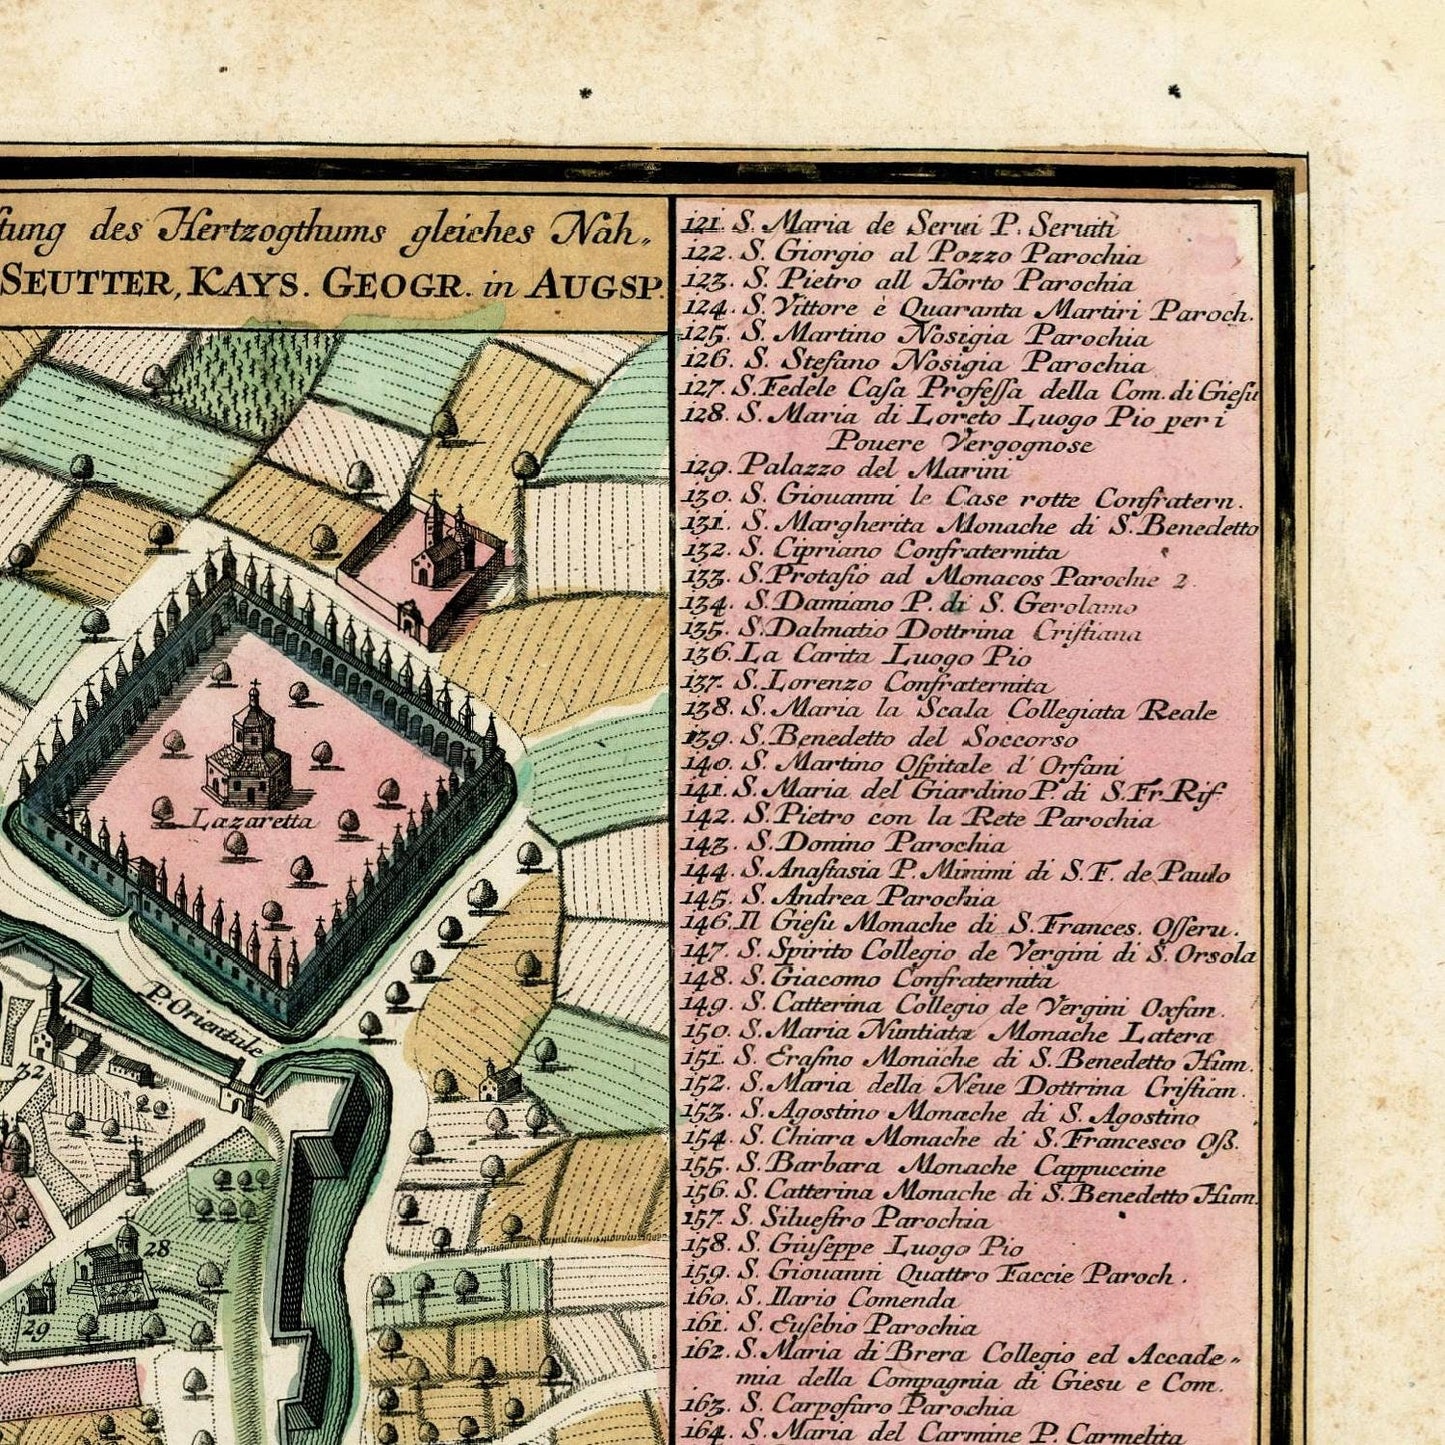 ftung des Hertzogthums gleiches Nah„
SEUTTER, KAYS. GEOGR. in AUGSP.
Lazaretta
P. Orientale
32
28
29
121. S. Maria de Serui P. Seruiti
122. S. Giorgio al Pozzo Parochia
123. S. Pietro all Horto Parochia
124. S. Vittore è Quaranta Martiri Paroch.
125. S. Martino Nosigia Parochia
126. S. Stefano Nosigia Parochia
127. S. Fedele Casa Professa della Com. di Giesu
128. S. Maria di Loreto Luogo Pio per i
Pouere Vergognose
129. Palazzo del Marini
130. S. Giouanni le Case rotte Confratern.
131. S. Margherita Monache di S. Benedetto
132. S. Cipriano Confraternita
133. S. Protasio ad Monacos Parochie 2.
134. S. Damiano P. di S. Gerolamo
135. S. Dalmatio Dottrina Cristiana
136. La Carita Luogo Pio
137. S. Lorenzo Confraternita
138. S. Maria la Scala Collegiata Reale
139. S. Benedetto del Soccorso
140. S. Martino Ospitale d' Orfani
141. S. Maria del Giardino P. di S. Fr. Rif
142. S. Pietro con la Rete Parochia
143. S. Donino Parochia
144. S. Anastasia P. Minimi di S. F. de Paulo
145. S. Andrea Parochia
146. Il Giesu Monache di S. Frances. Osseru.
147. S. Spirito Collegio de Vergini di S. Orsola
148. S. Giacomo Confraternita
149. S. Catterina Collegio de Vergini Oxfan.
150. S. Maria Nuntiata Monache Latera
151. S. Erasmo Monache di S. Benedetto Hum.
152. S. Maria della Neue Dottrina Cristian.
153. S. Agostino Monache di S. Agostino
154. S. Chiara Monache di S. Francesco Oß.
155. S. Barbara Monache Cappuccine
156. S. Catterina Monache di S. Benedetto Hum.
157. S. Siluestro Parochia
158. S. Giuseppe Luogo Pio
159. S. Giouanni Quattro Faccie Paroch.
160. S. Ilario Comenda
161. S. Eusebio Parochia
162. S. Maria di Brera Collegio ed Accade„
mia della Compagnia di Giesu e Com.
163. S. Carpofaro Parochia
164. S. Maria del Carmine P. Carmelita